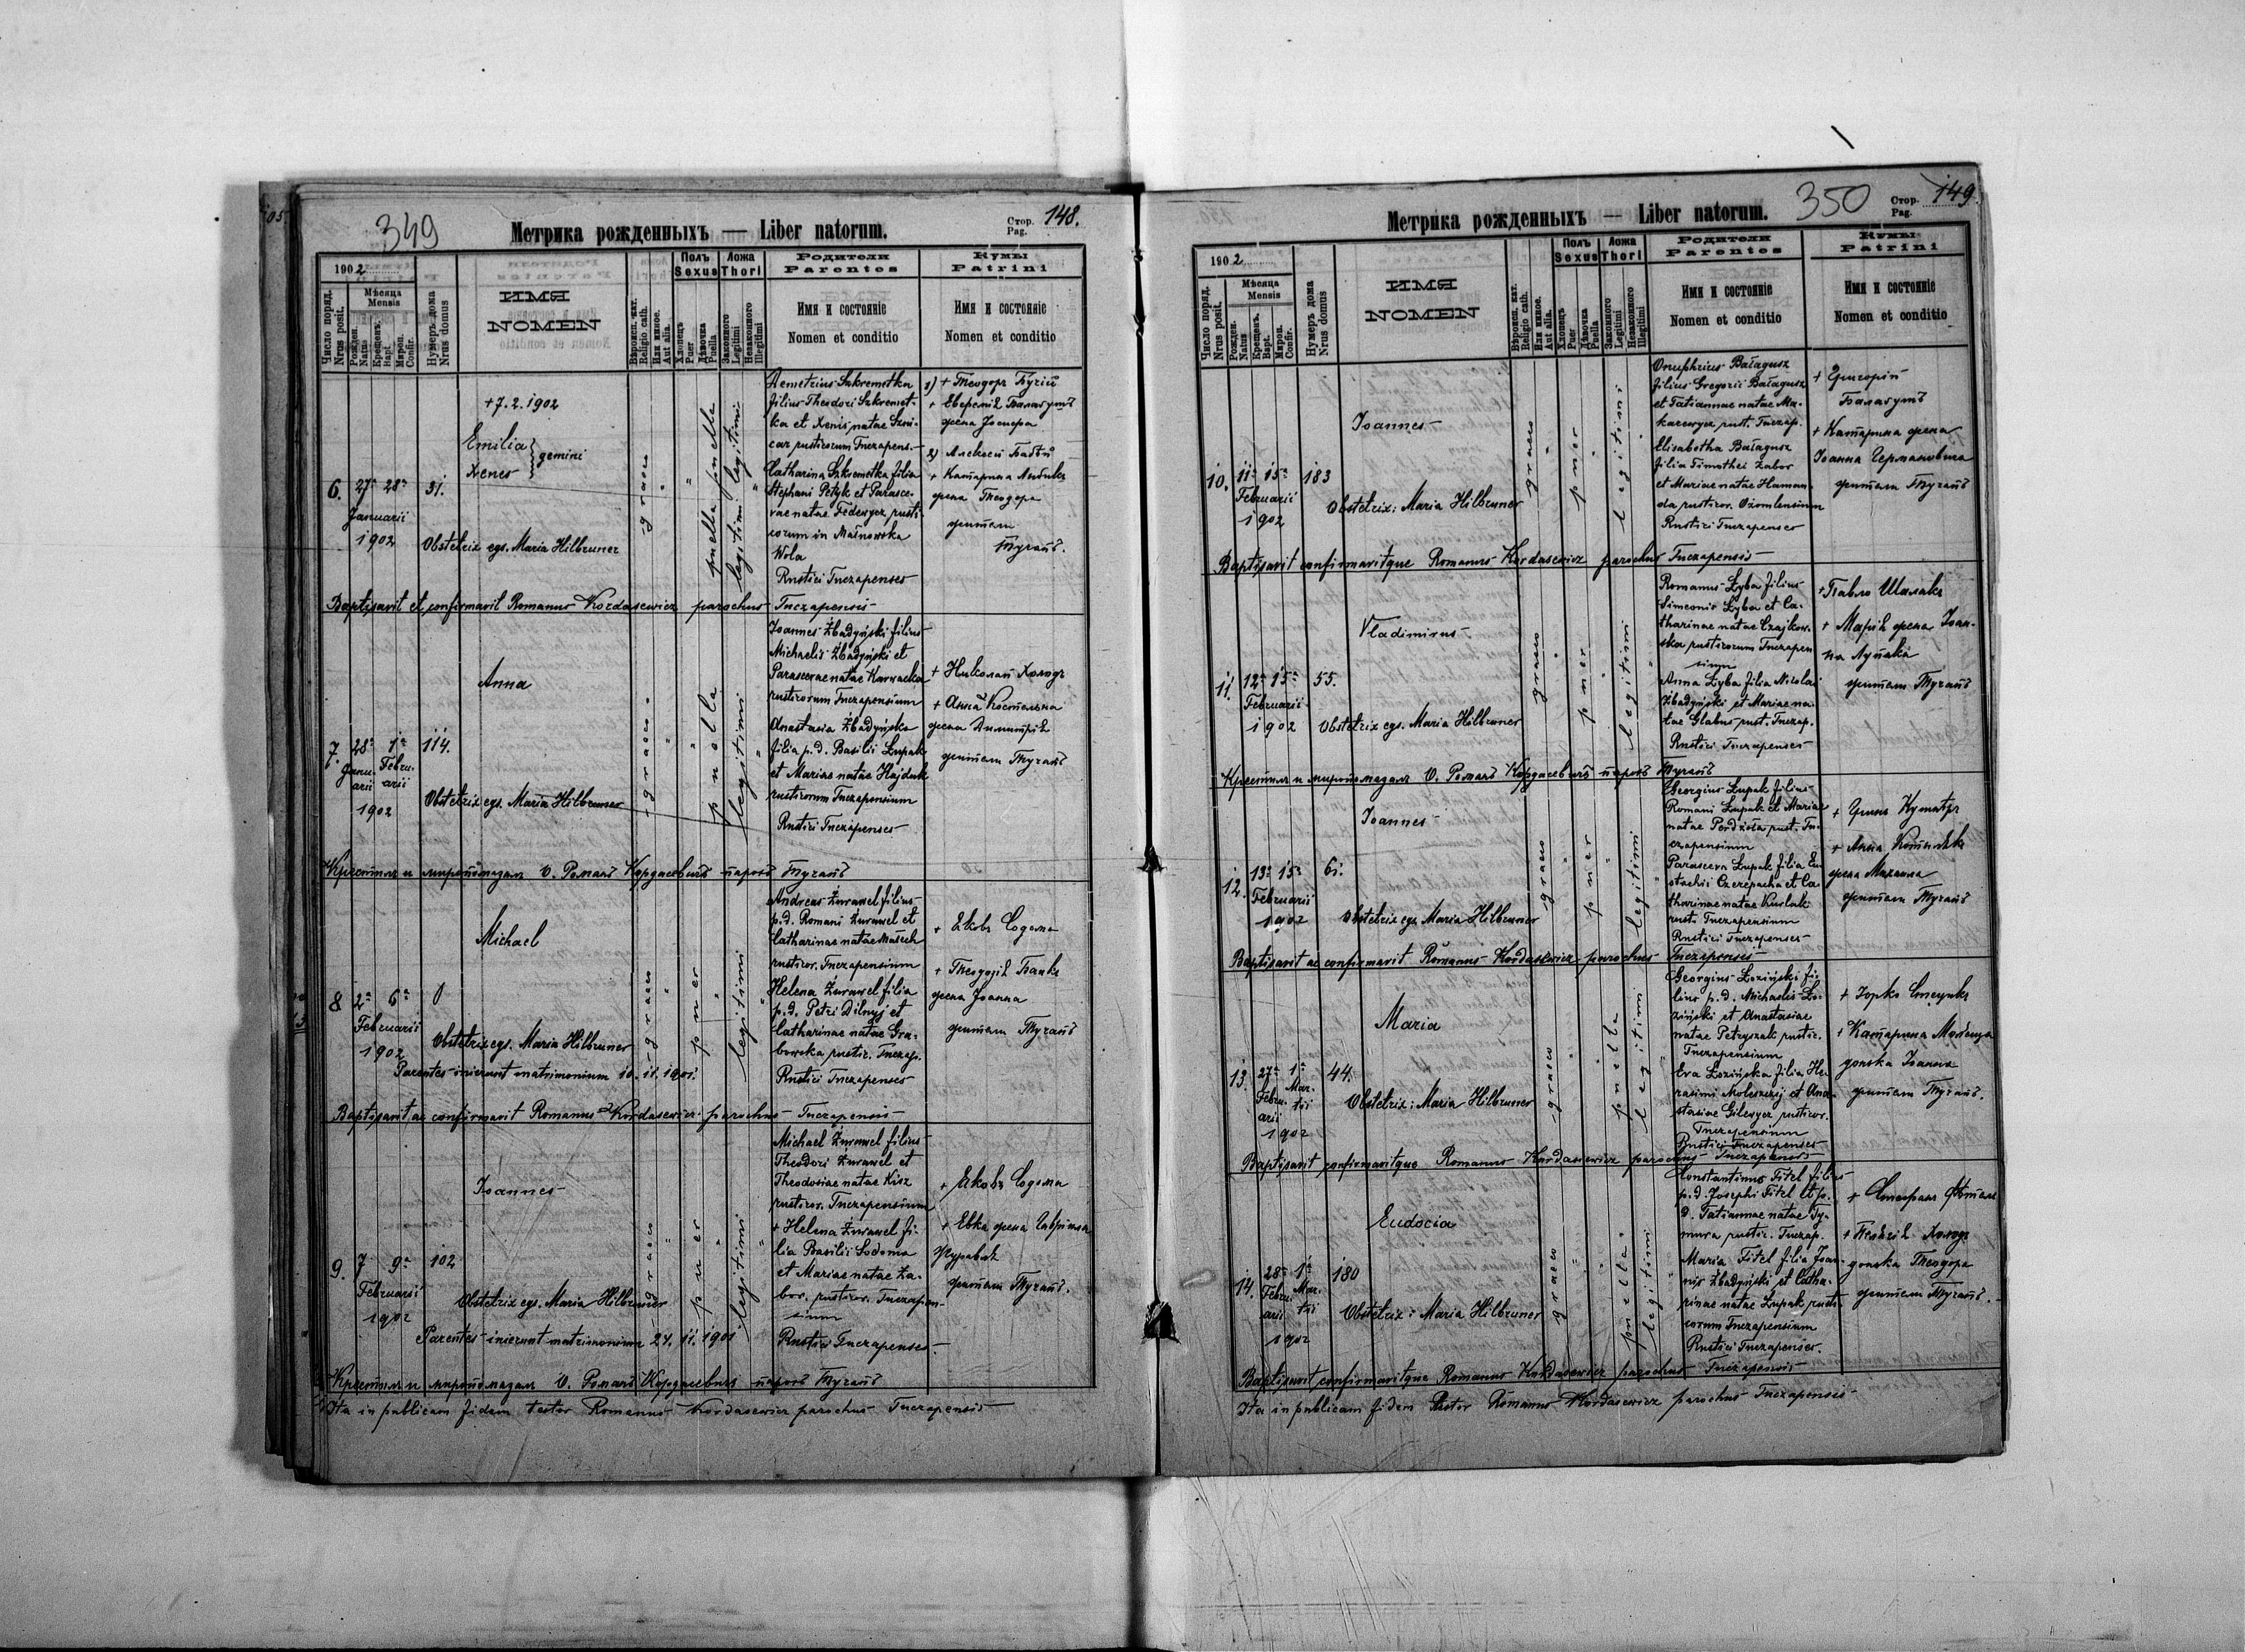 349
Метрика рожденныхъ — Liber natorum.
Стор.
Pag.
148.
1902
Число поряд.
Nrus posit.
Мѣсяца
Mensis
Рожден.
Natus
Крещенъ.
Bapt.
Мѵроп.
Confir.
Нумеръ дома
Nrus domus
ИМЯ
NOMEN
Вѣроисп. кат.
Religio cath.
Или иное.
Aut alia.
Полъ
Sexus
Хлопецъ
Puer
Дѣвочка
Puella
Ложа
Thori
Законного
Legitimi
Незаконного
Illegitimi
Родители
Parentes
Имя и состояніе
Nomen et conditio
Кумы
Patrini
Имя и состояніе
Nomen et conditio
6.
27ª 28ª
Januarii
1902
31.
+7.2.1902
Emilia
Xenes
gemini
Obstetrix egs. Maria Hilbruner
graeco
puella puella
legitimi legitimi
Demetrius Szkremetka
filius Theodori Szkremet-
ka et Xenis natae
rusticorum Tuczapens.
Catharina Szkremetka filia
Stephani Petyk et Parasce-
vae natae Fedewycz rusti-
corum in Malnowska
Wola
Rustici Tuczapenses
1) + Теодоръ
2) Алексѣй
+ Катарина
жена Теодора
жители
Тучапъ.
Baptisavit et confirmavit Romanus Kordasewicz parochus Tuczapensis
7.
28ª 1ª
Janu- Febru-
arii arii
1902
114.
Anna
Obstetrix egs. Maria Hilbruner
graeco
puella
legitimi
Joannes Żbadyński filius
Michaelis Żbadyński et
Parascevae natae Karwacka
rusticorum Tuczapensium
Anastasia Żbadyńska
filia p.d. Basilii Łupak
et Mariae natae Hajduk
rusticorum Tuczapensium
Rustici Tuczapenses
+ Николай
+ Анна
жена Димитрія
жители Тучапъ
Крестилъ и миропомазалъ О. Романъ Кордасевичъ парохъ Тучапъ
8
2ª 6ª
Februarii
1902
Michael
Obstetrix egs. Maria Hilbruner
Parentes inierunt matrimonium 10.11.1901.
graeco
puer
legitimi
Andreas Żurawel filius
p.d. Romani Żurawel et
Catharinae natae
rusticor. Tuczapensium
Helena Żurawel filia
p.d. Petri Dilnyj et
Catharinae natae Gra-
bowska rustic. Tuczap.
Rustici Tuczapenses
+ Яковъ Содома
+ Теодозія Банкъ
жена Іоанна
жители Тучапъ
Baptisavit ac confirmavit Romanus Kordasewicz parochus Tuczapensis
9.
7 9ª
Februarii
1902
102
Joannes
Obstetrix egs. Maria Hilbruner
Parentes inierunt matrimonium 24.11.1901
graeco
puer
legitimi
Michael Żurawel filius
Theodori Żurawel et
Theodosiae natae Kisz
rusticor. Tuczapensium
+ Helena Żurawel fi-
lia Basilii Sodoma
et Mariae natae Ża-
bor. rusticor. Tuczapen-
sium
Rustici Tuczapenses.
+ Яковъ Содома
+ Евка жена Гавриила
Журавель
жители Тучапъ.
Крестилъ и миропомазалъ О. Романъ Кордасевичъ парохъ Тучапъ
Ita in publicam fidem testor Romanus Kordasewicz parochus Tuczapensis
Метрика рожденныхъ — Liber natorum.
350
Стор.
Pag.
149.
1902
Число поряд.
Nrus posit.
Мѣсяца
Mensis
Рожден.
Natus
Крещенъ.
Bapt.
Мѵроп.
Confir.
Нумеръ дома
Nrus domus
ИМЯ
NOMEN
Вѣроисп. кат.
Religio cath.
Или иное.
Aut alia.
Полъ
Sexus
Хлопецъ
Puer
Дѣвочка
Puella
Ложа
Thori
Законного
Legitimi
Незаконного
Illegitimi
Родители
Parentes
Имя и состояніе
Nomen et conditio
Кумы
Patrini
Имя и состояніе
Nomen et conditio
10.
11ª 15ª
Februarii
1902
183
Joannes
Obstetrix: Maria Hilbruner
graeco
puer
legitimi
Onuphrius Bałagusz
filius Gregorii Bałagusz
et Tatiannae natae Ma-
karewycz rust. Tuczap.
Elisabetha Bałagusz
filia Timothei Zabor
et Mariae natae Haman-
da rusticor. Ożomlensium
Rustici Tuczapenses
+ Григорій
Балагушъ
+ Катарина жена
Іоанна Германовича
жители Тучапъ
Baptisavit confirmavitque Romanus Kordasewicz parochus Tuczapensis
11.
12ª 15ª
Februarii
1902
55.
Vladimirus
Obstetrix egs. Maria Hilbruner
graeco
puer
legitimi
Romanus Łyba filius
Simeonis Łyba et Ca-
tharinae natae Czajkow-
ska rusticorum Tuczapen
sium
Anna Łyba filia Nicolai
Żbadyński et Mariae na-
tae Glabus rust. Tuczap.
Rustici Tuczapenses
+ Павло
+ Марія жена Іоан-
на Лупака
жители Тучапъ
Крестилъ и миропомазалъ О. Романъ Кордасевичъ парохъ Тучапъ
12.
13ª 15ª
Februarii
1902
61.
Joannes
Obstetrix egs. Maria Hilbruner
graeco
puer
legitimi
Georgius Łupak filius
Romani Łupak et Mariae
natae rust. Tu-
czapensium
Parasceva Łupak filia Eu
stachii Czerepacha et Ca
tharinae natae Kurlak
rust. Tuczapensium
Rustici Tuczapenses
+ Анна
жена Михаила
жители Тучапъ
Baptisavit ac confirmavit Romanus Kordasewicz parochus Tuczapensis
13.
27ª 1ª
Febru- Mar-
arii tii
1902
44.
Maria
Obstetrix: Maria Hilbruner
graeco
puella
legitimi
Georgius Łoziński fi-
lius p.d. Michaelis Ło-
ziński et Anastasiae
natae Petryszak rustic.
Tuczapensium
Eva Łozińska filia He-
rasimi Moleszczij et Ana-
stasiae Gilewycz rusticor.
Tuczapensium
Rustici Tuczapenses
+ Юрко
+ Катарина
донька Іоанна
жители Тучапъ.
Baptisavit confirmavitque Romanus Kordasewicz parochus Tuczapensis
14.
28ª 1ª
Febru- Mar-
arii tii
1902
180
Eudocia
Obstetrix: Maria Hilbruner
graeco
puella
legitimi
Constantinus Fitel filius
p.d. Josephi Fitel et p.
d. Tatiannae natae Ty-
mura rustic. Tuczap.
Maria Fitel filia Joan-
nis Żbadyński et Catha-
rinae natae Łupak rusti-
corum Tuczapensium
Rustici Tuczapenses.
+ Стефанъ Фѣтель
донька Теодора
жители Тучапъ.
Baptisavit confirmavitque Romanus Kordasewicz parochus Tuczapensis
Ita in publicam fidem testor Romanus Kordasewicz parochus Tuczapensis